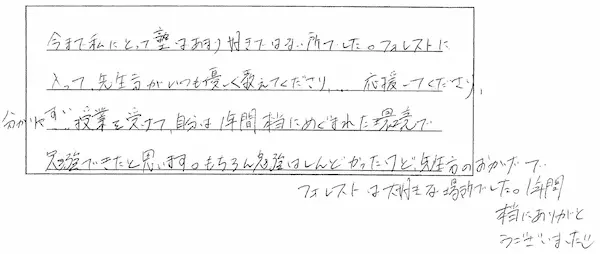 今まで私にとって塾はあまり好きではない所でした。フォレストに
入って、先生方がいつも優しく教えてくださり、... 応援してくださり、
分かりやすい授業を受けて、自分は1年間本当にめぐまれた環境で
勉強できたと思います。もちろん勉強はしんどかったけど、先生方のおかげで
フォレストは大好きな場所でした。1年間
本当にありがと
うございました